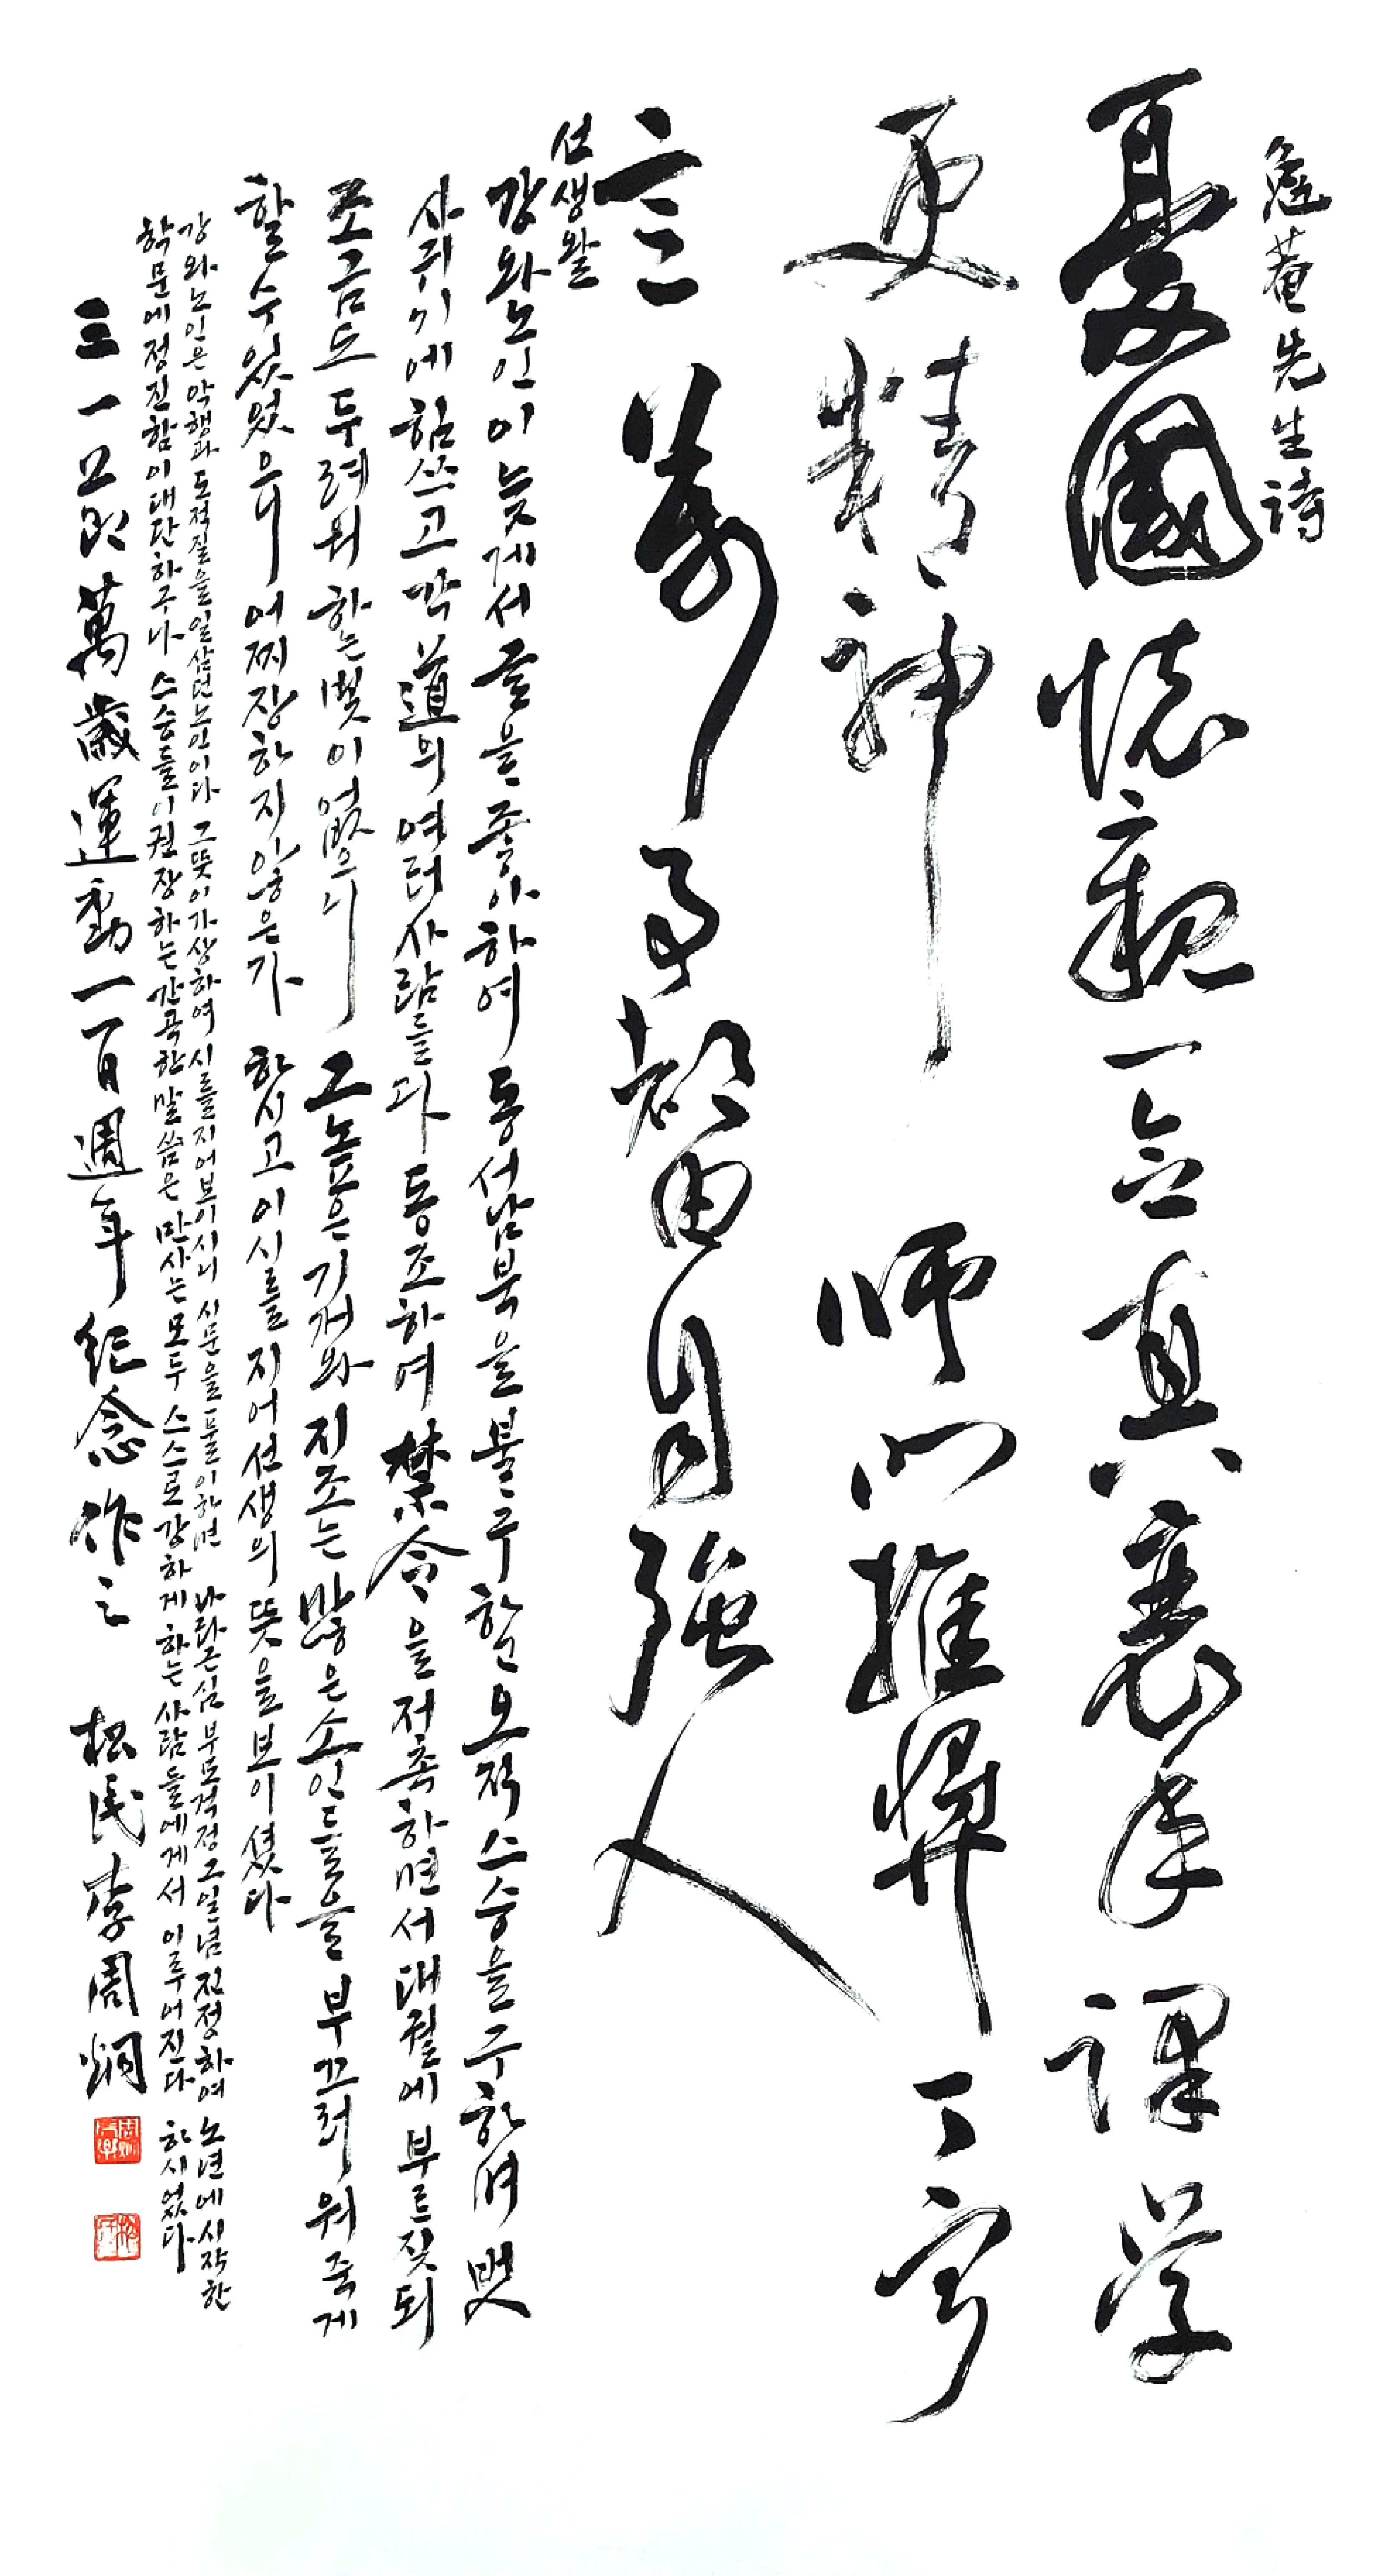 菴先生詩
憂國懷親一念真衰年課學
更精神 師門推奬丁寧
言萬事都由自強人
선생왈
강와노인이늦게서글을좋아하여 동서남북을불구 한오직스승을구하며 벗
사귀기에힘쓰고각道의여러사람들과 동조하여 禁令을저촉하면서대궐에부르짖되
조금도두려워하는빛이없으니 그높은기개와지조는많은소인들을부끄러워죽게
할수있었으니 어찌장하지않은가 하시고이시를지어선생의뜻을보이셨다
강와노인은악행과도적질을일삼던노인이다 그뜻이가상하여시를지어보이시니 시문을풀이하면 나라근심부모걱정그일념진정하여 노년에시작한
학문에정진함이대단하구나 스승들이권장하는간곡한말씀은만사는모두스스로강하게하는사람들에게서이루어진다 하시었다
三一己亥萬歲運動一百週年紀念作之 松民李周炯